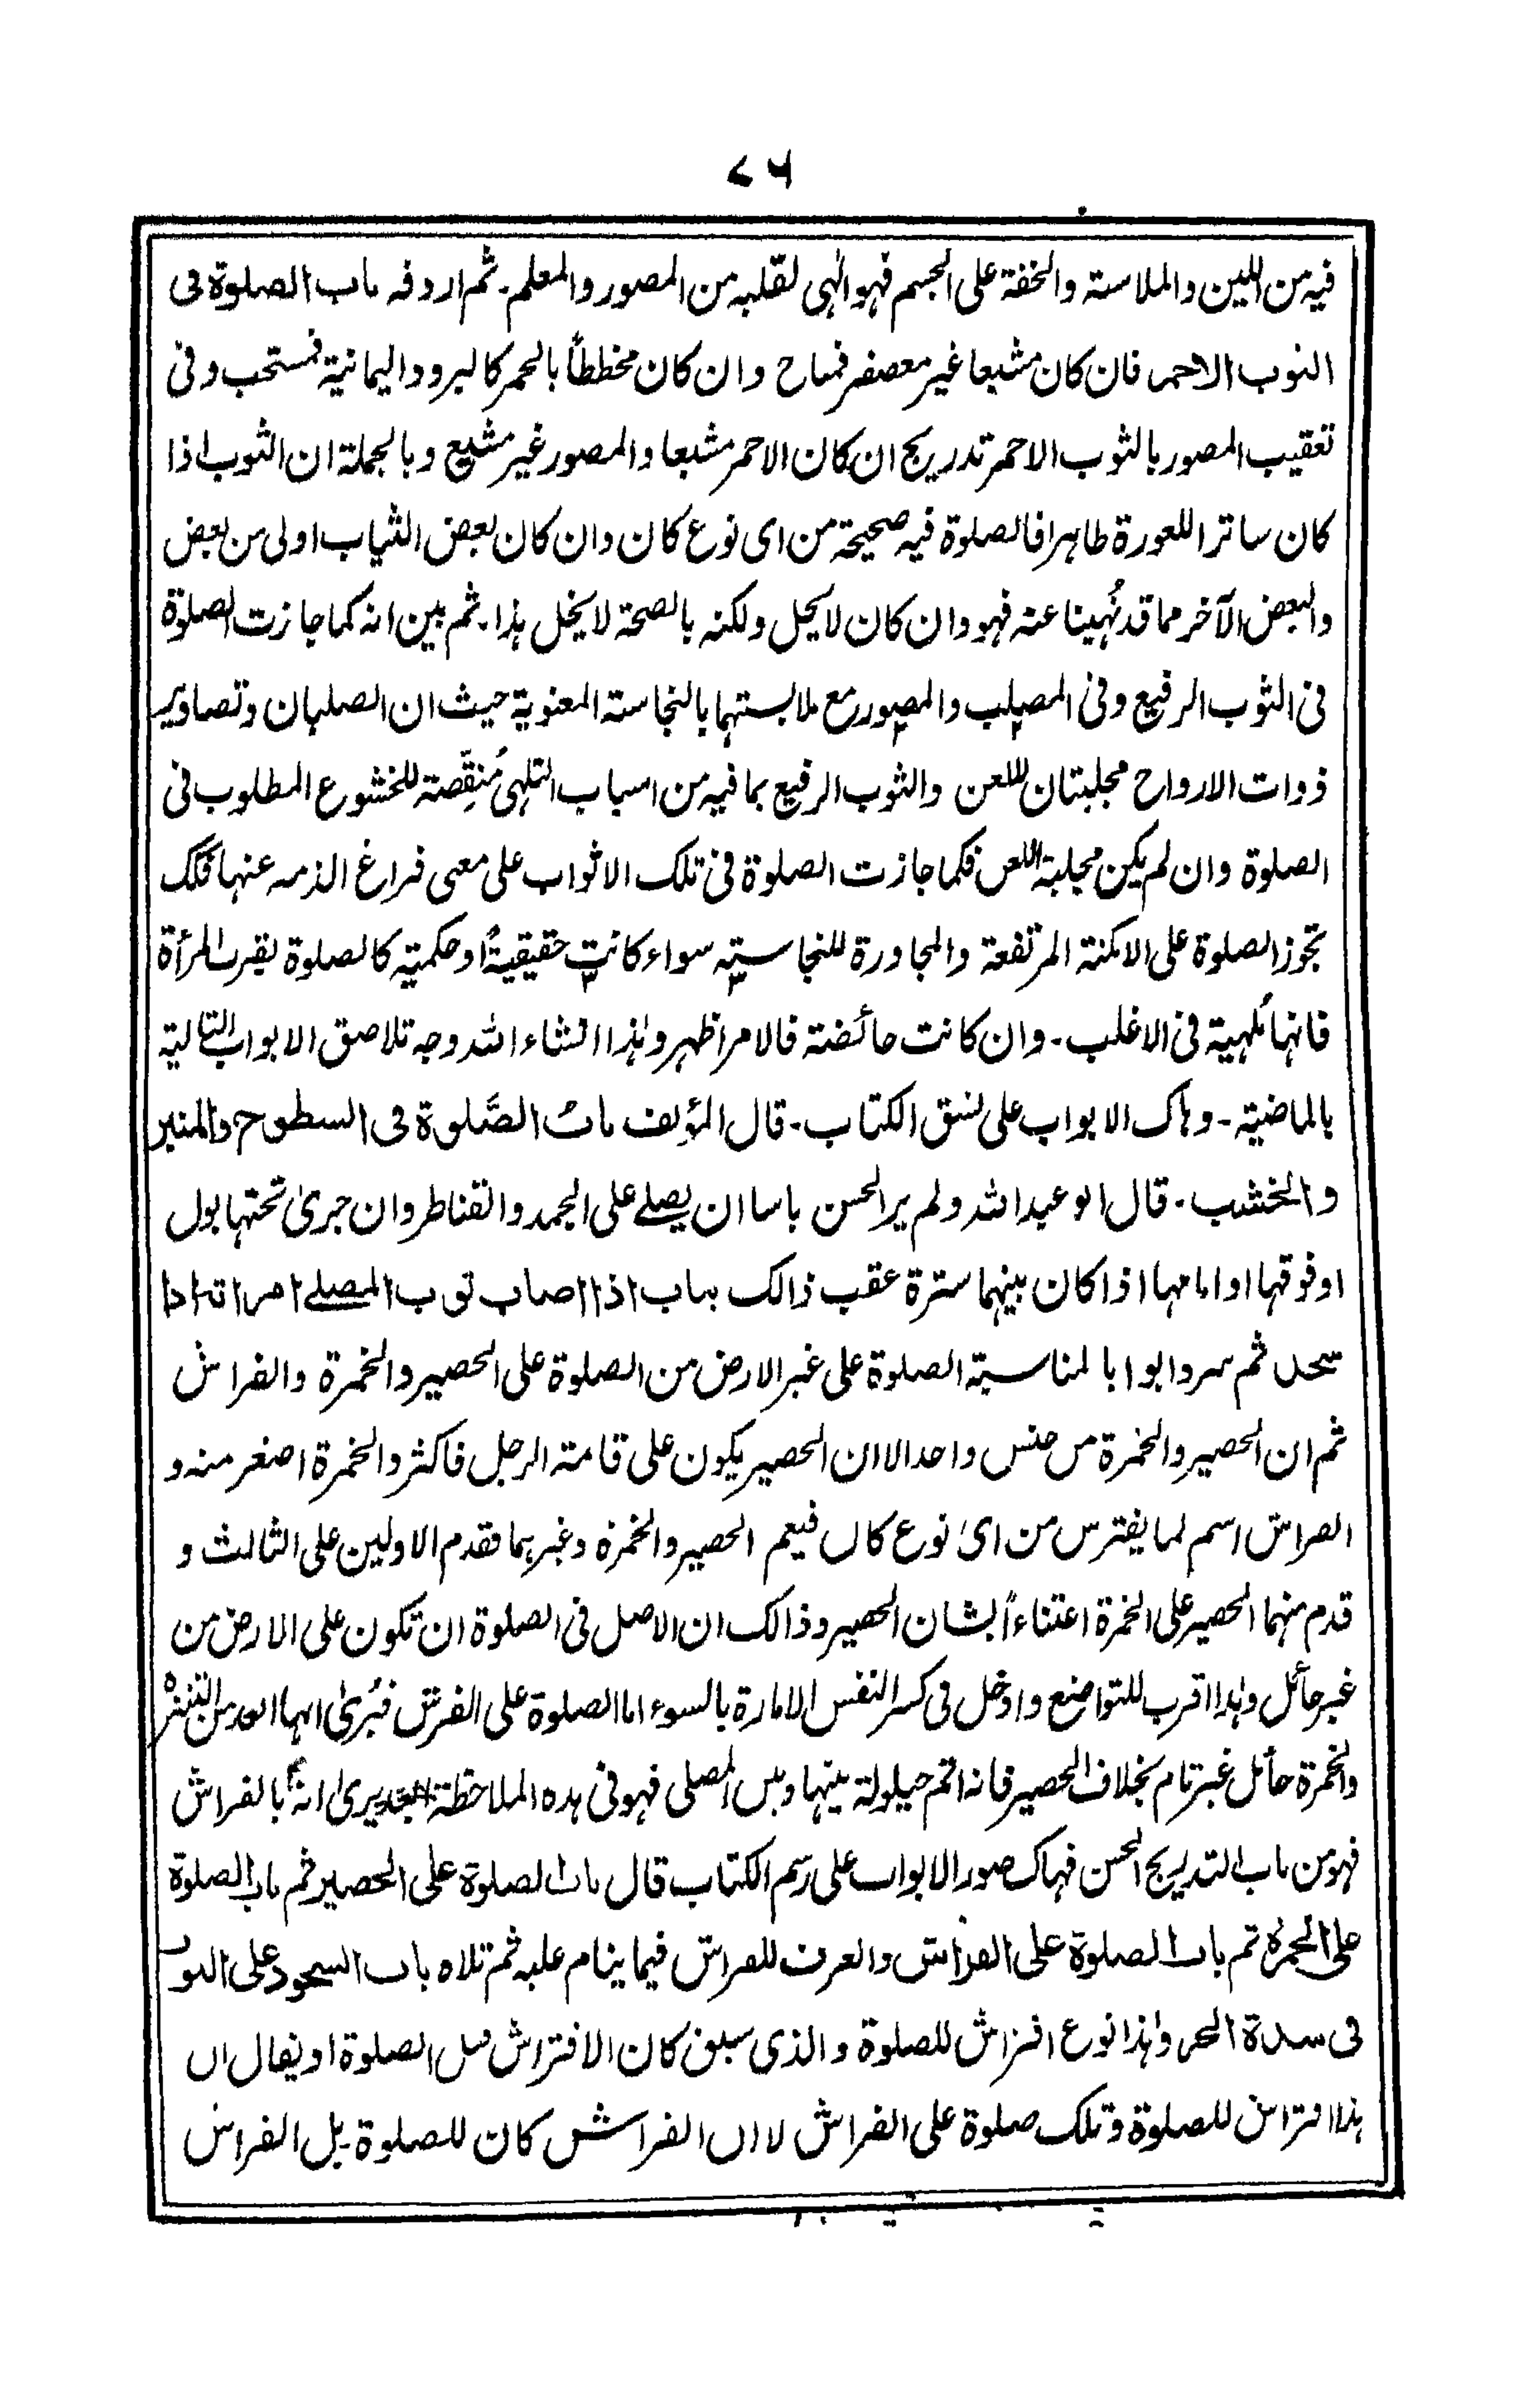 ٧٦
فيه من اللين والملاسته والخفة على الجسم فهو الٰهى لقلبه من المصور والمعلم۔ ثم اردفه باب الصلوة فى
الثوب الاحمر فان كان مشبعا غير معصفر فمباح وان كان مخططاً بالحمر كالبرود اليمانية فمستحب وفى
تعقيب المصور بالثوب الاحمر تدريج ان كان الاحمر مشبعا والمصور غير مشبع وبالجملة ان الثوب اذا
كان ساترا للعورة طاهرا فالصلوة فيه صحيحة من اى نوع كان وان كان بعض الثياب اولى من بعض
والبعض الآخر مما قد نُهينا عنه فهو وان كان لا يحل ولكنه بالصحة لا يخل هذا۔ ثم بين انه كما جازت الصلوة
فى الثوب الرفيع وفى المصلب والمصور مع ملابستهما بالنجاسته المعنوية حيث ان الصلبان وتصاوير
ذوات الارواح مجلبتان للعن والثوب الرفيع بما فيه من اسباب التلهى مُنقِّصة للخشوع المطلوب فى
الصلوة وان لم يكن مجلبة اللعن فكما جازت الصلوة فى تلك الاثواب على معنى فراغ الذمه عنها فكك
تجوز الصلوة على الامكنة المرتفعة والمجاورة للنجاسته سواء كانت حقيقيةً او حكمية كالصلوة بقرب المرأة
فانها مُلهية فى الاغلب۔ وان كانت حائضة فالامر اظهر وهذا انشاء الله وجه تلاصق الابواب التالية
بالماضية۔ وهاك الابواب على نسق الكتاب۔ قال المؤلف باب الصَّلوة فى السطوح والمنبر
والخشب۔ قال ابو عبد الله ولم ير الحسن باسا ان يصلے على الجمد والقناطر وان جرىٰ تحتها بول
او فوقها او امامها اذا كان بينهما سترة عقب ذالك بباب اذا اصاب ثوب المصلے امراته اذا
سجد ثم سرد ابوابا لمناسبة الصلوة على غير الارض من الصلوة على الحصير والخمرة والفراش
ثم ان الحصير والخمرة من جنس واحد الا ان الحصير يكون على قامة الرجل فاكثر والخمرة اصغر منه و
الفراش اسم لما يفترش من اىٰ نوع كان فيعم الحصير والخمرة وغيرهما فقدم الاولين على الثالث و
قدم منهما الحصير على الخمرة اعتناءاً لشان الحصير وذالك ان الاصل فى الصلوة ان تكون على الارض من
غير حائل وهذا اقرب للتواضع وادخل فى كسر النفس الامارة بالسوء اما الصلوة على الفرش فيُرىٰ انها ابعد من التنزه
والخمرة حائل غير تام بخلاف الحصير فانه اتم حيلولة بينها وبين المصلى فهو فى هذه الملاحظة يرىٰ انه بالفراش
فهو من باب التدريج الحسن فهاك صور الابواب على رسم الكتاب قال باب الصلوة على الحصير ثم باب الصلوة
على الخمرة ثم باب الصلوة على الفراش والعرف للفراش فيما ينام عليه ثم تلاه باب السجود على الثوب
فى شدة الحر وهذا نوع افتراش للصلوة والذى سبق كان الافتراش قبل الصلوة او يقال ان
هذا افتراش للصلوة وتلك صلوة على الفراش لا ان الفراش كان للصلوة۔ بل الفراش